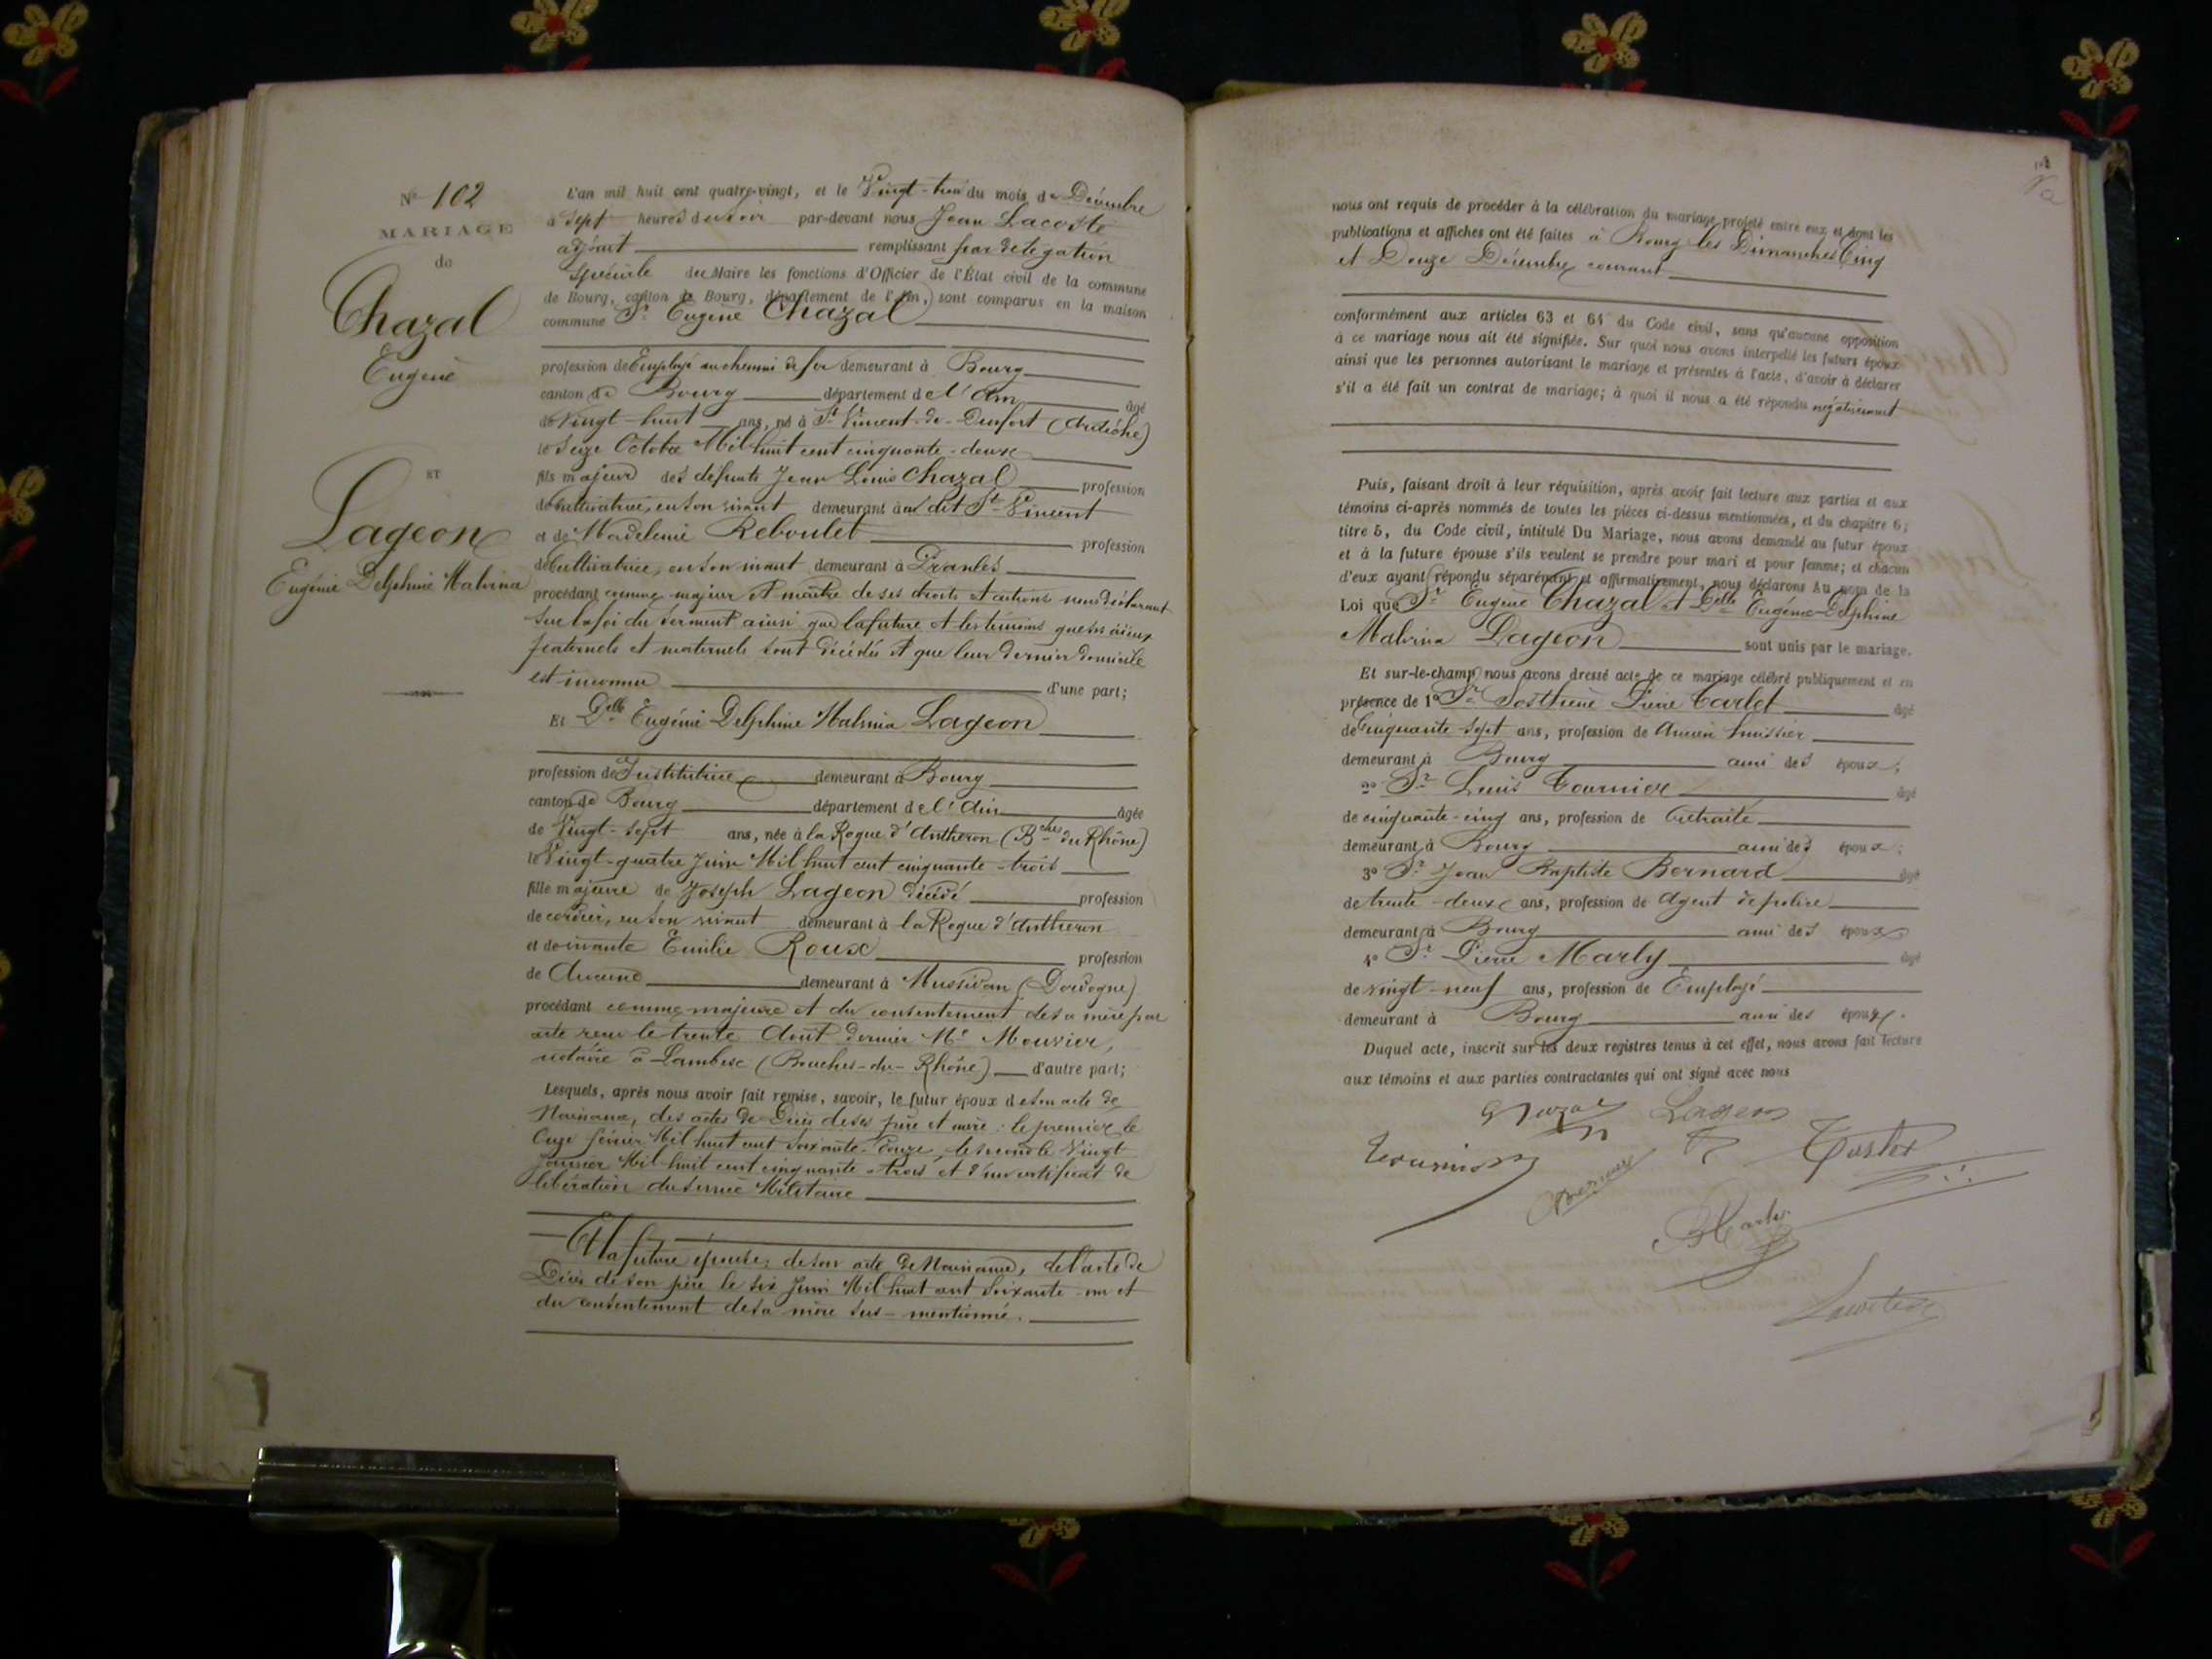 N° 102
MARIAGE
de
Chazal
Eugène
ET
Lageon
Eugénie Delphine Malvina
L'an mil huit cent quatre-vingt, et le Vingt-trois du mois de Décembre
à Sept heures du soir par-devant nous Jean Lacoste
adjoint remplissant par délégation
Spéciale du Maire les fonctions d'Officier de l'État civil de la commune
de Bourg, canton de Bourg, département de l'Ain, sont comparus en la maison
commune Sr Eugène Chazal
profession de Employé au chemin de fer demeurant à Bourg
canton de Bourg département de l'Ain âgé
de Vingt-huit ans, né à St Vincent-de-Durfort (Ardèche)
le Seize Octobre Mil huit cent cinquante-deux
fils majeur des défunts Jean Louis Chazal profession
de Cultivateur, en son vivant demeurant au dit St Vincent
et de Madeleine Reboulet profession
de Cultivatrice, en son vivant demeurant à Pranles
procédant comme majeur et maître de ses droits et actions nous déclarant
sur la foi du serment ainsi que la future et les témoins que ses aïeux
paternels et maternels sont décédés et que leur dernier domicile
est inconnu d'une part;
Et Delle Eugénie Delphine Malvina Lageon
profession de Institutrice demeurant à Bourg
canton de Bourg département de l'Ain âgée
de Vingt-sept ans, née à la Roque d'Antheron (Bches du Rhône)
le Vingt-quatre Juin Mil huit cent cinquante-trois
fille majeure de Joseph Lageon décédé profession
de cordier, en son vivant demeurant à la Roque d'Antheron
et de vivante Emilie Roux profession
de Aucune demeurant à Mussidan (Dordogne)
procédant comme majeure et du consentement de sa mère par
acte reçu le trente Août dernier Me Mouvier,
notaire à Lambesc (Bouches-du-Rhône) d'autre part;
Lesquels, après nous avoir fait remise, savoir, le futur époux de son acte de
Naissance, des actes de Décès de ses père et mère: le premier le
Onze février Mil huit cent soixante-douze, le second le Vingt
Janvier Mil huit cent cinquante-trois et d'un certificat de
libération du service Militaire
Et la future épouse: de son acte de Naissance, de l'acte de
Décès de son père le six Juin Mil huit cent soixante-un et
du consentement de sa mère sus-mentionné.
nous ont requis de procéder à la célébration du mariage projeté entre eux et dont les
publications et affiches ont été faites à Bourg les Dimanches Cinq
et Douze Décembre courant
conformément aux articles 63 et 64 du Code civil, sans qu'aucune opposition
à ce mariage nous ait été signifiée. Sur quoi nous avons interpellé les futurs époux
ainsi que les personnes autorisant le mariage et présentes à l'acte, d'avoir à déclarer
s'il a été fait un contrat de mariage; à quoi il nous a été répondu négativement
Puis, faisant droit à leur réquisition, après avoir fait lecture aux parties et aux
témoins ci-après nommés de toutes les pièces ci-dessus mentionnées, et du chapitre 6;
titre 5, du Code civil, intitulé Du Mariage, nous avons demandé au futur époux
et à la future épouse s'ils veulent se prendre pour mari et pour femme; et chacun
d'eux ayant répondu séparément et affirmativement, nous déclarons Au nom de la
Loi que Sr Eugène Chazal et Delle Eugénie-Delphine
Malvina Lageon sont unis par le mariage.
Et sur-le-champ nous avons dressé acte de ce mariage célébré publiquement et en
présence de 1° Sr Sosthène Pierre Carlet âgé
de Cinquante-sept ans, profession de Ancien huissier
demeurant à Bourg ami des époux;
2° Sr Louis Tournier âgé
de cinquante-cinq ans, profession de retraité
demeurant à Bourg ami des époux;
3° Sr Jean Baptiste Bernard âgé
de trente-deux ans, profession de Agent de police
demeurant à Bourg ami des époux
4° Sr Pierre Marly âgé
de vingt-neuf ans, profession de Employé
demeurant à Bourg ami des époux.
Duquel acte, inscrit sur les deux registres tenus à cet effet, nous avons fait lecture
aux témoins et aux parties contractantes qui ont signé avec nous
Chazal Lageon
Tournier
Bernard
Marly
Lacoste